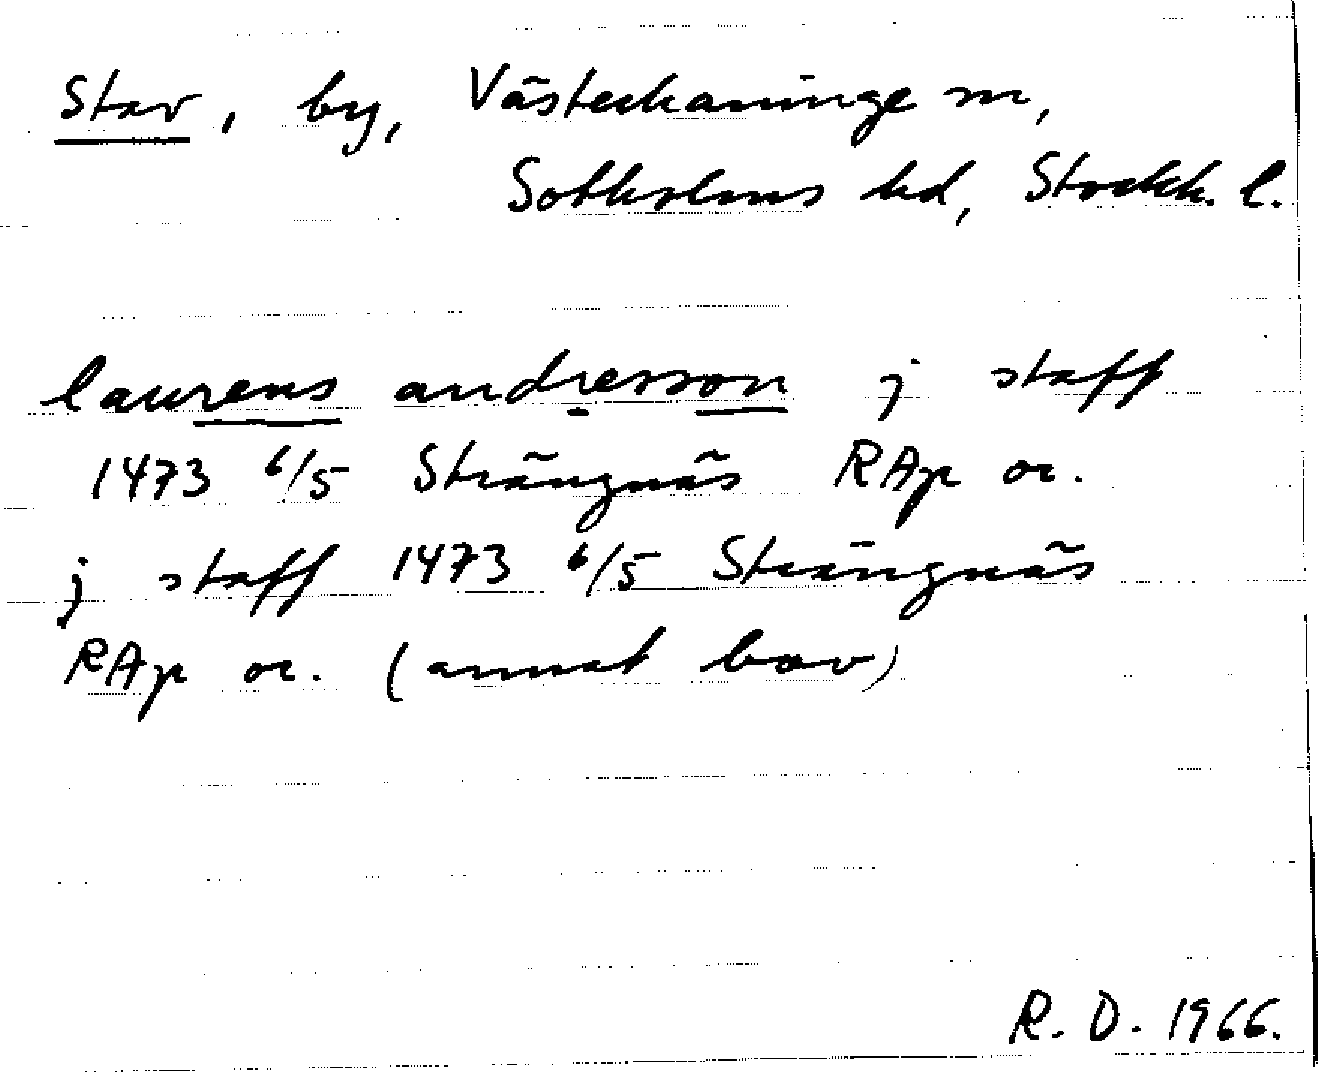 Stav, by, Västerhaninge sn,
Sotholms hd, Stockh. l.
laurens andresson j staff
1473 6/5 Strängnäs RAp or.
j staff 1473 6/5 Strängnäs
RAp or. (annat brev)
R. D. 1966.